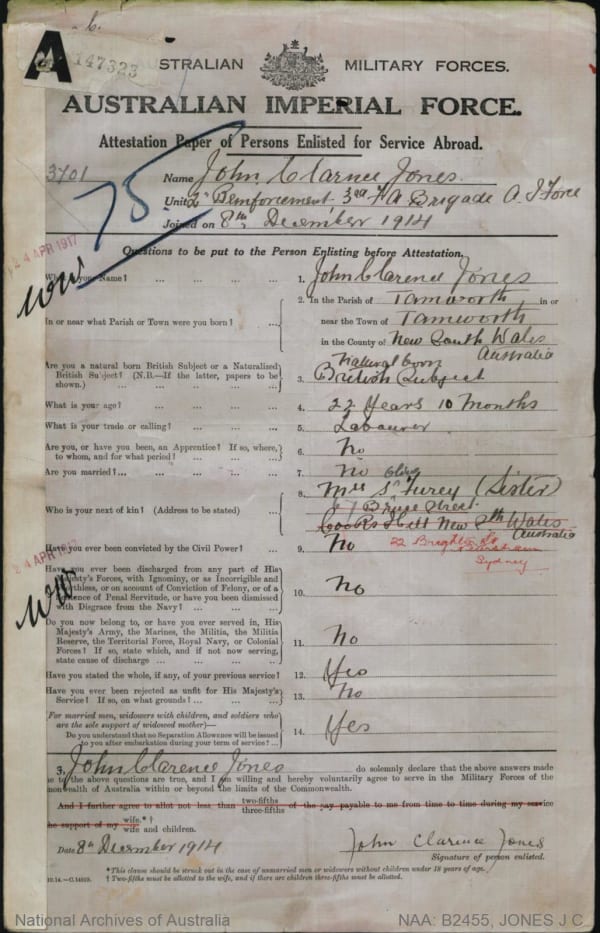 A
147323
AUSTRALIAN MILITARY FORCES.
AUSTRALIAN IMPERIAL FORCE.
Attestation Paper of Persons Enlisted for Service Abroad.
3701
75
Name John Clarnce Jones.
Unit 2n Reinforcement 3rd F A Brigade A. I Force
Joined on 8th December 1914
24 APR 1917
Questions to be put to the Person Enlisting before Attestation.
your Name? ... ... ... ... 1. John Clarence Jones
In or near what Parish or Town were you born? ... 2. In the Parish of Tamworth in or
near the Town of Tamworth
in the County of New South Wales
Australia
Are you a natural born British Subject or a Naturalised
British Subject? (N.B.—If the latter, papers to be
shown.) ... ... ... ... 3. Natural born
British Subject
What is your age? ... ... ... ... 4. 22 Years 10 Months
What is your trade or calling? ... ... ... 5. Labourer
Are you, or have you been, an Apprentice? If so, where,
to whom, and for what period? ... ... ... 6. No
Are you married? ... ... ... ... 7. No
Who is your next of kin? (Address to be stated) ... 8. Mrs S. Furey (Sister)
67 Bruce Street
Cooks Hill New Sth Wales
Australia
22 Brighton St
Sydney
Have you ever been convicted by the Civil Power? ... 9. No
24 APR 1917
Have you ever been discharged from any part of His
Majesty's Forces, with Ignominy, or as Incorrigible and
Worthless, or on account of Conviction of Felony, or of a
Sentence of Penal Servitude, or have you been dismissed
with Disgrace from the Navy? ... ... ... 10. No
Do you now belong to, or have you ever served in, His
Majesty's Army, the Marines, the Militia, the Militia
Reserve, the Territorial Force, Royal Navy, or Colonial
Forces? If so, state which, and if not now serving,
state cause of discharge ... ... ... 11. No
Have you stated the whole, if any, of your previous service? 12. Yes
Have you ever been rejected as unfit for His Majesty's
Service? If so, on what grounds? ... ... ... 13. No
(For married men, widowers with children, and soldiers who
are the sole support of widowed mother)—
Do you understand that no Separation Allowance will be issued
to you after embarkation during your term of service? ... 14. Yes
3. John Clarence Jones do solemnly declare that the above answers made
me to the above questions are true, and I am willing and hereby voluntarily agree to serve in the Military Forces of the
monwealth of Australia within or beyond the limits of the Commonwealth.
And I further agree to allot not less than two-fifths three-fifths of the pay payable to me from time to time during my service
the support of my wife.*†
wife and children.
Date 8th December 1914 John Clarence Jones
Signature of person enlisted.
* This clause should be struck out in the case of unmarried men or widowers without children under 18 years of age.
10.14.—C.14919. † Two-fifths must be allotted to the wife, and if there are children three-fifths must be allotted.
National Archives of Australia NAA: B2455, JONES J C